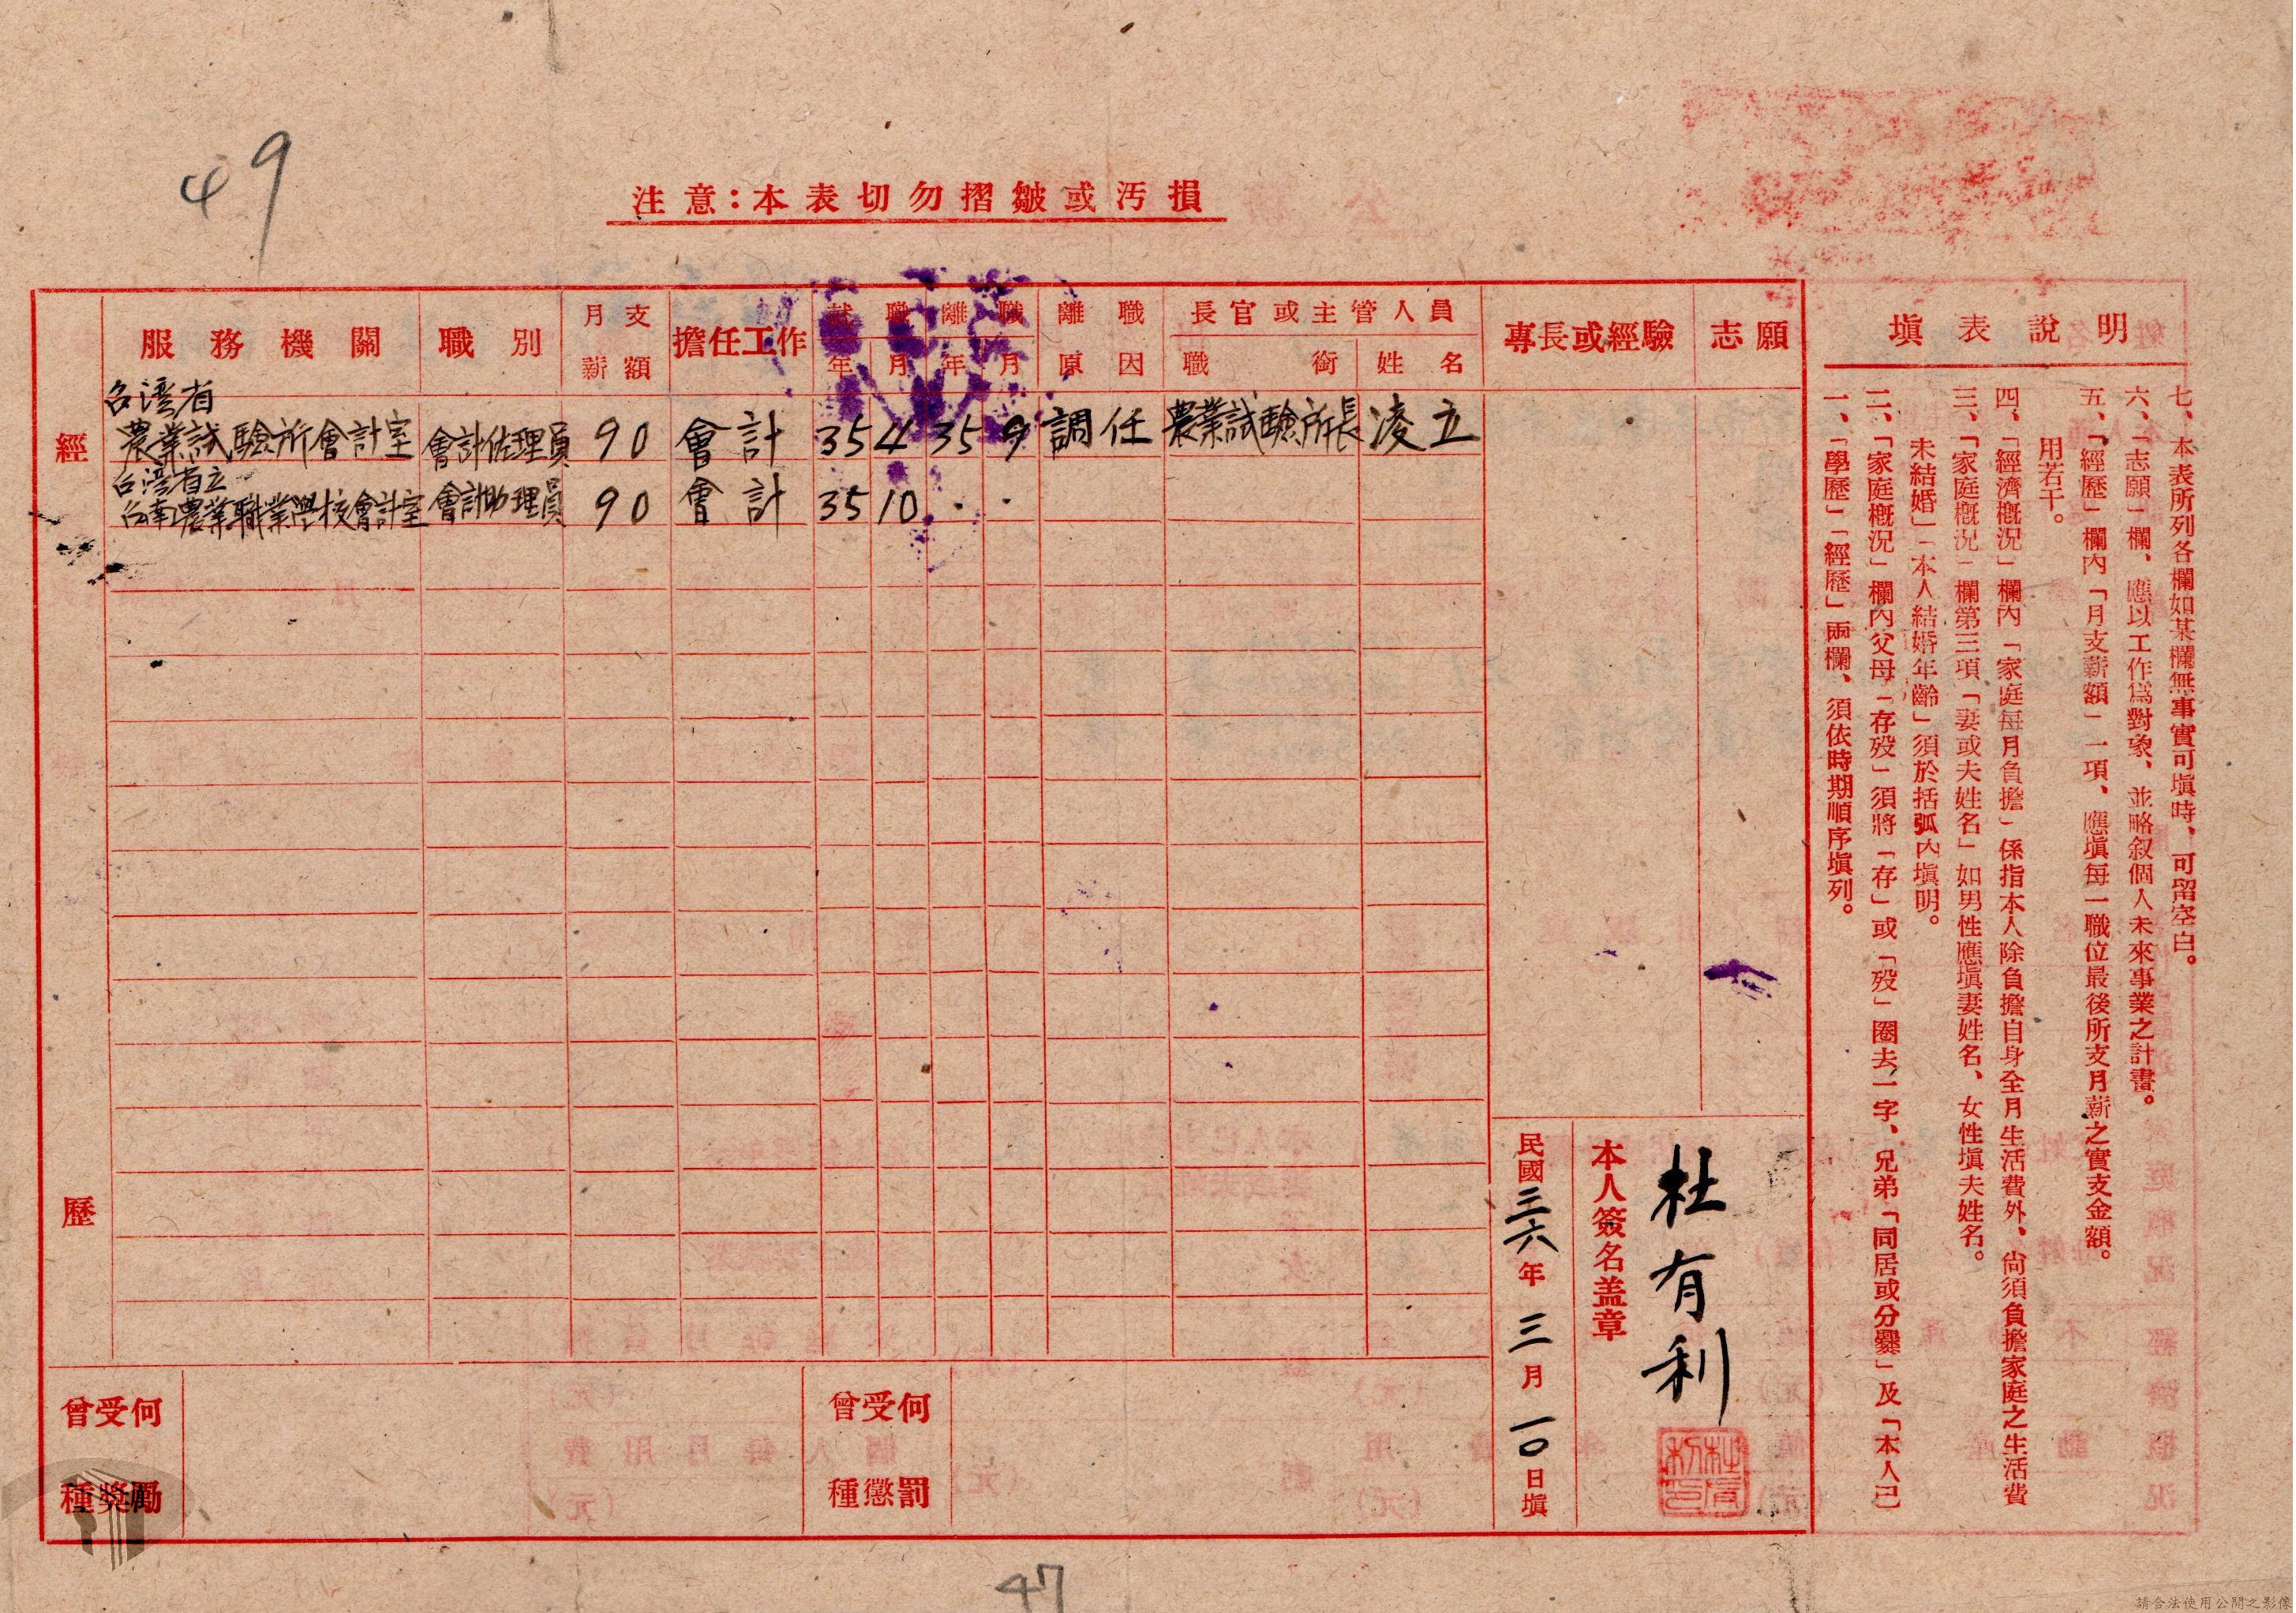 49
注意：本表切勿摺皺或汚損
經歷
服務機關
職別
月支薪額
擔任工作
就職年月
離職年月
離職原因
長官或主管人員
職銜
姓名
專長或經驗
志願
台湾省
農業試驗所會計室 會計佐理員 90 會計 35 4 35 9 調任 農業試驗所長 凌立
台湾省立
台南農業職業學校會計室 會計助理員 90 會計 35 10 . .
曾受何種獎勵
曾受何種懲罰
本人簽名盖章
杜有利
民國三六年三月一〇日塡
塡表說明
一、「學歷」「經歷」兩欄、須依時期順序塡列。
二、「家庭概況」欄內父母「存歿」須將「存」或「歿」圈去一字、兄弟「同居或分爨」及「本人已
未結婚」「本人結婚年齡」須於括弧內塡明。
三、「家庭概況」欄第三項「妻或夫姓名」如男性應塡妻姓名、女性塡夫姓名。
四、「經濟概況」欄內「家庭每月負擔」係指本人除負擔自身全月生活費外、尙須負擔家庭之生活費
用若干。
五、「經歷」欄內「月支薪額」一項、應塡每一職位最後所支月薪之實支金額。
六、「志願」欄、應以工作爲對象、並略叙個人未來事業之計畫。
七、本表所列各欄如某欄無事實可塡時、可留空白。
47
請合法使用公開之影像